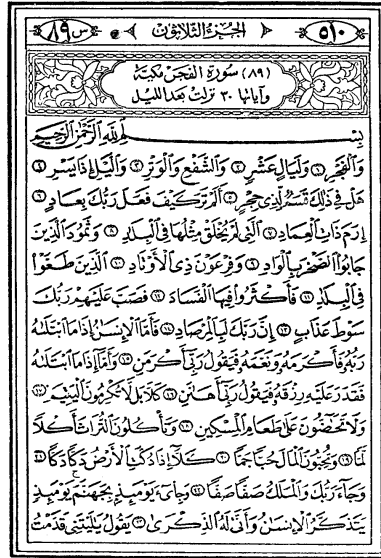 س ٨٩ الجزء الثلاثون ٥١٠
(٨٩) سورة الفجر مكية
وآياتها ٣٠ نزلت بعد الليل
بِسْمِ اللَّهِ الرَّحْمَٰنِ الرَّحِيمِ
وَالْفَجْرِ ١ وَلَيَالٍ عَشْرٍ ٢ وَالشَّفْعِ وَالْوَتْرِ ٣ وَاللَّيْلِ إِذَا يَسْرِ ٤
هَلْ فِي ذَٰلِكَ قَسَمٌ لِّذِي حِجْرٍ ٥ أَلَمْ تَرَ كَيْفَ فَعَلَ رَبُّكَ بِعَادٍ ٦
إِرَمَ ذَاتِ الْعِمَادِ ٧ الَّتِي لَمْ يُخْلَقْ مِثْلُهَا فِي الْبِلَادِ ٨ وَثَمُودَ الَّذِينَ
جَابُوا الصَّخْرَ بِالْوَادِ ٩ وَفِرْعَوْنَ ذِي الْأَوْتَادِ ١٠ الَّذِينَ طَغَوْا
فِي الْبِلَادِ ١١ فَأَكْثَرُوا فِيهَا الْفَسَادَ ١٢ فَصَبَّ عَلَيْهِمْ رَبُّكَ
سَوْطَ عَذَابٍ ١٣ إِنَّ رَبَّكَ لَبِالْمِرْصَادِ ١٤ فَأَمَّا الْإِنسَانُ إِذَا مَا ابْتَلَاهُ
رَبُّهُ فَأَكْرَمَهُ وَنَعَّمَهُ فَيَقُولُ رَبِّي أَكْرَمَنِ ١٥ وَأَمَّا إِذَا مَا ابْتَلَاهُ
فَقَدَرَ عَلَيْهِ رِزْقَهُ فَيَقُولُ رَبِّي أَهَانَنِ ١٦ كَلَّا بَل لَّا تُكْرِمُونَ الْيَتِيمَ ١٧
وَلَا تَحَاضُّونَ عَلَىٰ طَعَامِ الْمِسْكِينِ ١٨ وَتَأْكُلُونَ التُّرَاثَ أَكْلًا
لَّمًّا ١٩ وَتُحِبُّونَ الْمَالَ حُبًّا جَمًّا ٢٠ كَلَّا إِذَا دُكَّتِ الْأَرْضُ دَكًّا دَكًّا ٢١
وَجَاءَ رَبُّكَ وَالْمَلَكُ صَفًّا صَفًّا ٢٢ وَجِيءَ يَوْمَئِذٍ بِجَهَنَّمَ يَوْمَئِذٍ
يَتَذَكَّرُ الْإِنسَانُ وَأَنَّىٰ لَهُ الذِّكْرَىٰ ٢٣ يَقُولُ يَا لَيْتَنِي قَدَّمْتُ